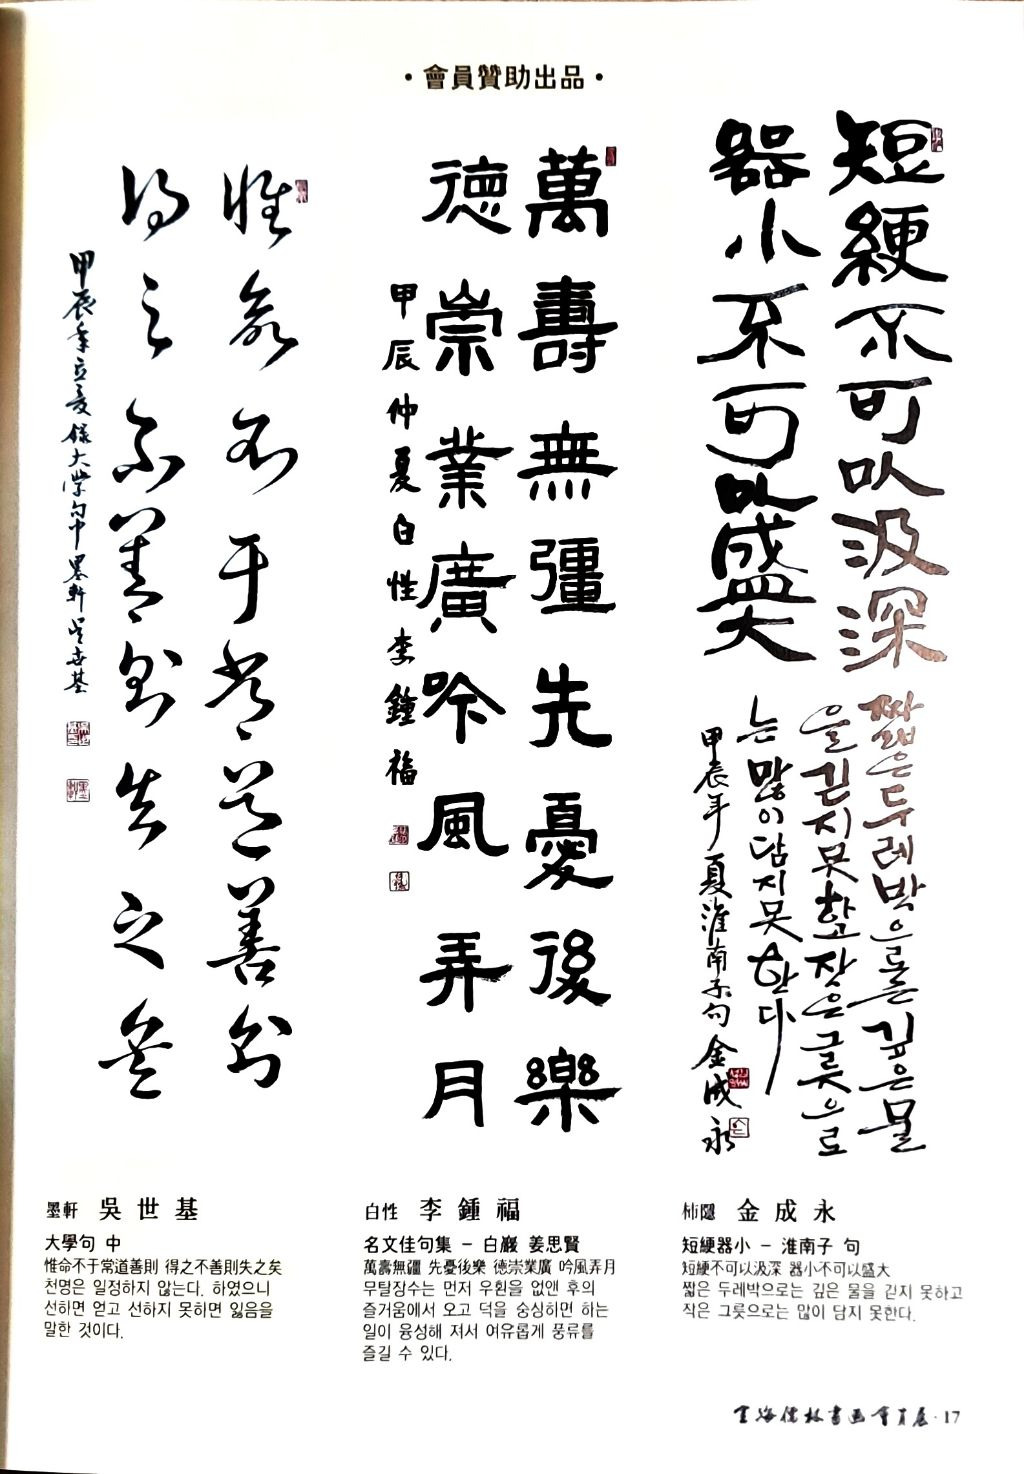 ·會員贊助出品·
短綆不可以汲深
器小不可以盛大
짧은 두레박으로 깊은 물
을 긷지 못하고 작은 그릇으로
는 많이 담지 못한다
甲辰年 夏 淮南子句 金成永
萬壽無彊先憂後樂
德崇業廣吟風弄月
甲辰仲夏白性李鍾福
惟命不于常道善則
得之不善則失之矣
甲辰年立夏錄大學句中墨軒吳世基
墨軒 吳世基
大學句 中
惟命不于常道善則 得之不善則失之矣
천명은 일정하지 않는다. 하였으니
선하면 얻고 선하지 못하면 잃음을
말한 것이다.
白性 李鍾福
名文佳句集 - 白巖 姜思賢
萬壽無疆 先憂後樂 德崇業廣 吟風弄月
무탈장수는 먼저 우환을 없앤 후의
즐거움에서 오고 덕을 숭상하면 하는
일이 융성해 저서 여유롭게 풍류를
즐길 수 있다.
柿隱 金成永
短綆器小 - 淮南子 句
短綆不可以汲深 器小不可以盛大
짧은 두레박으로는 깊은 물을 긷지 못하고
작은 그릇으로는 많이 담지 못한다.
書画會員展 · 17